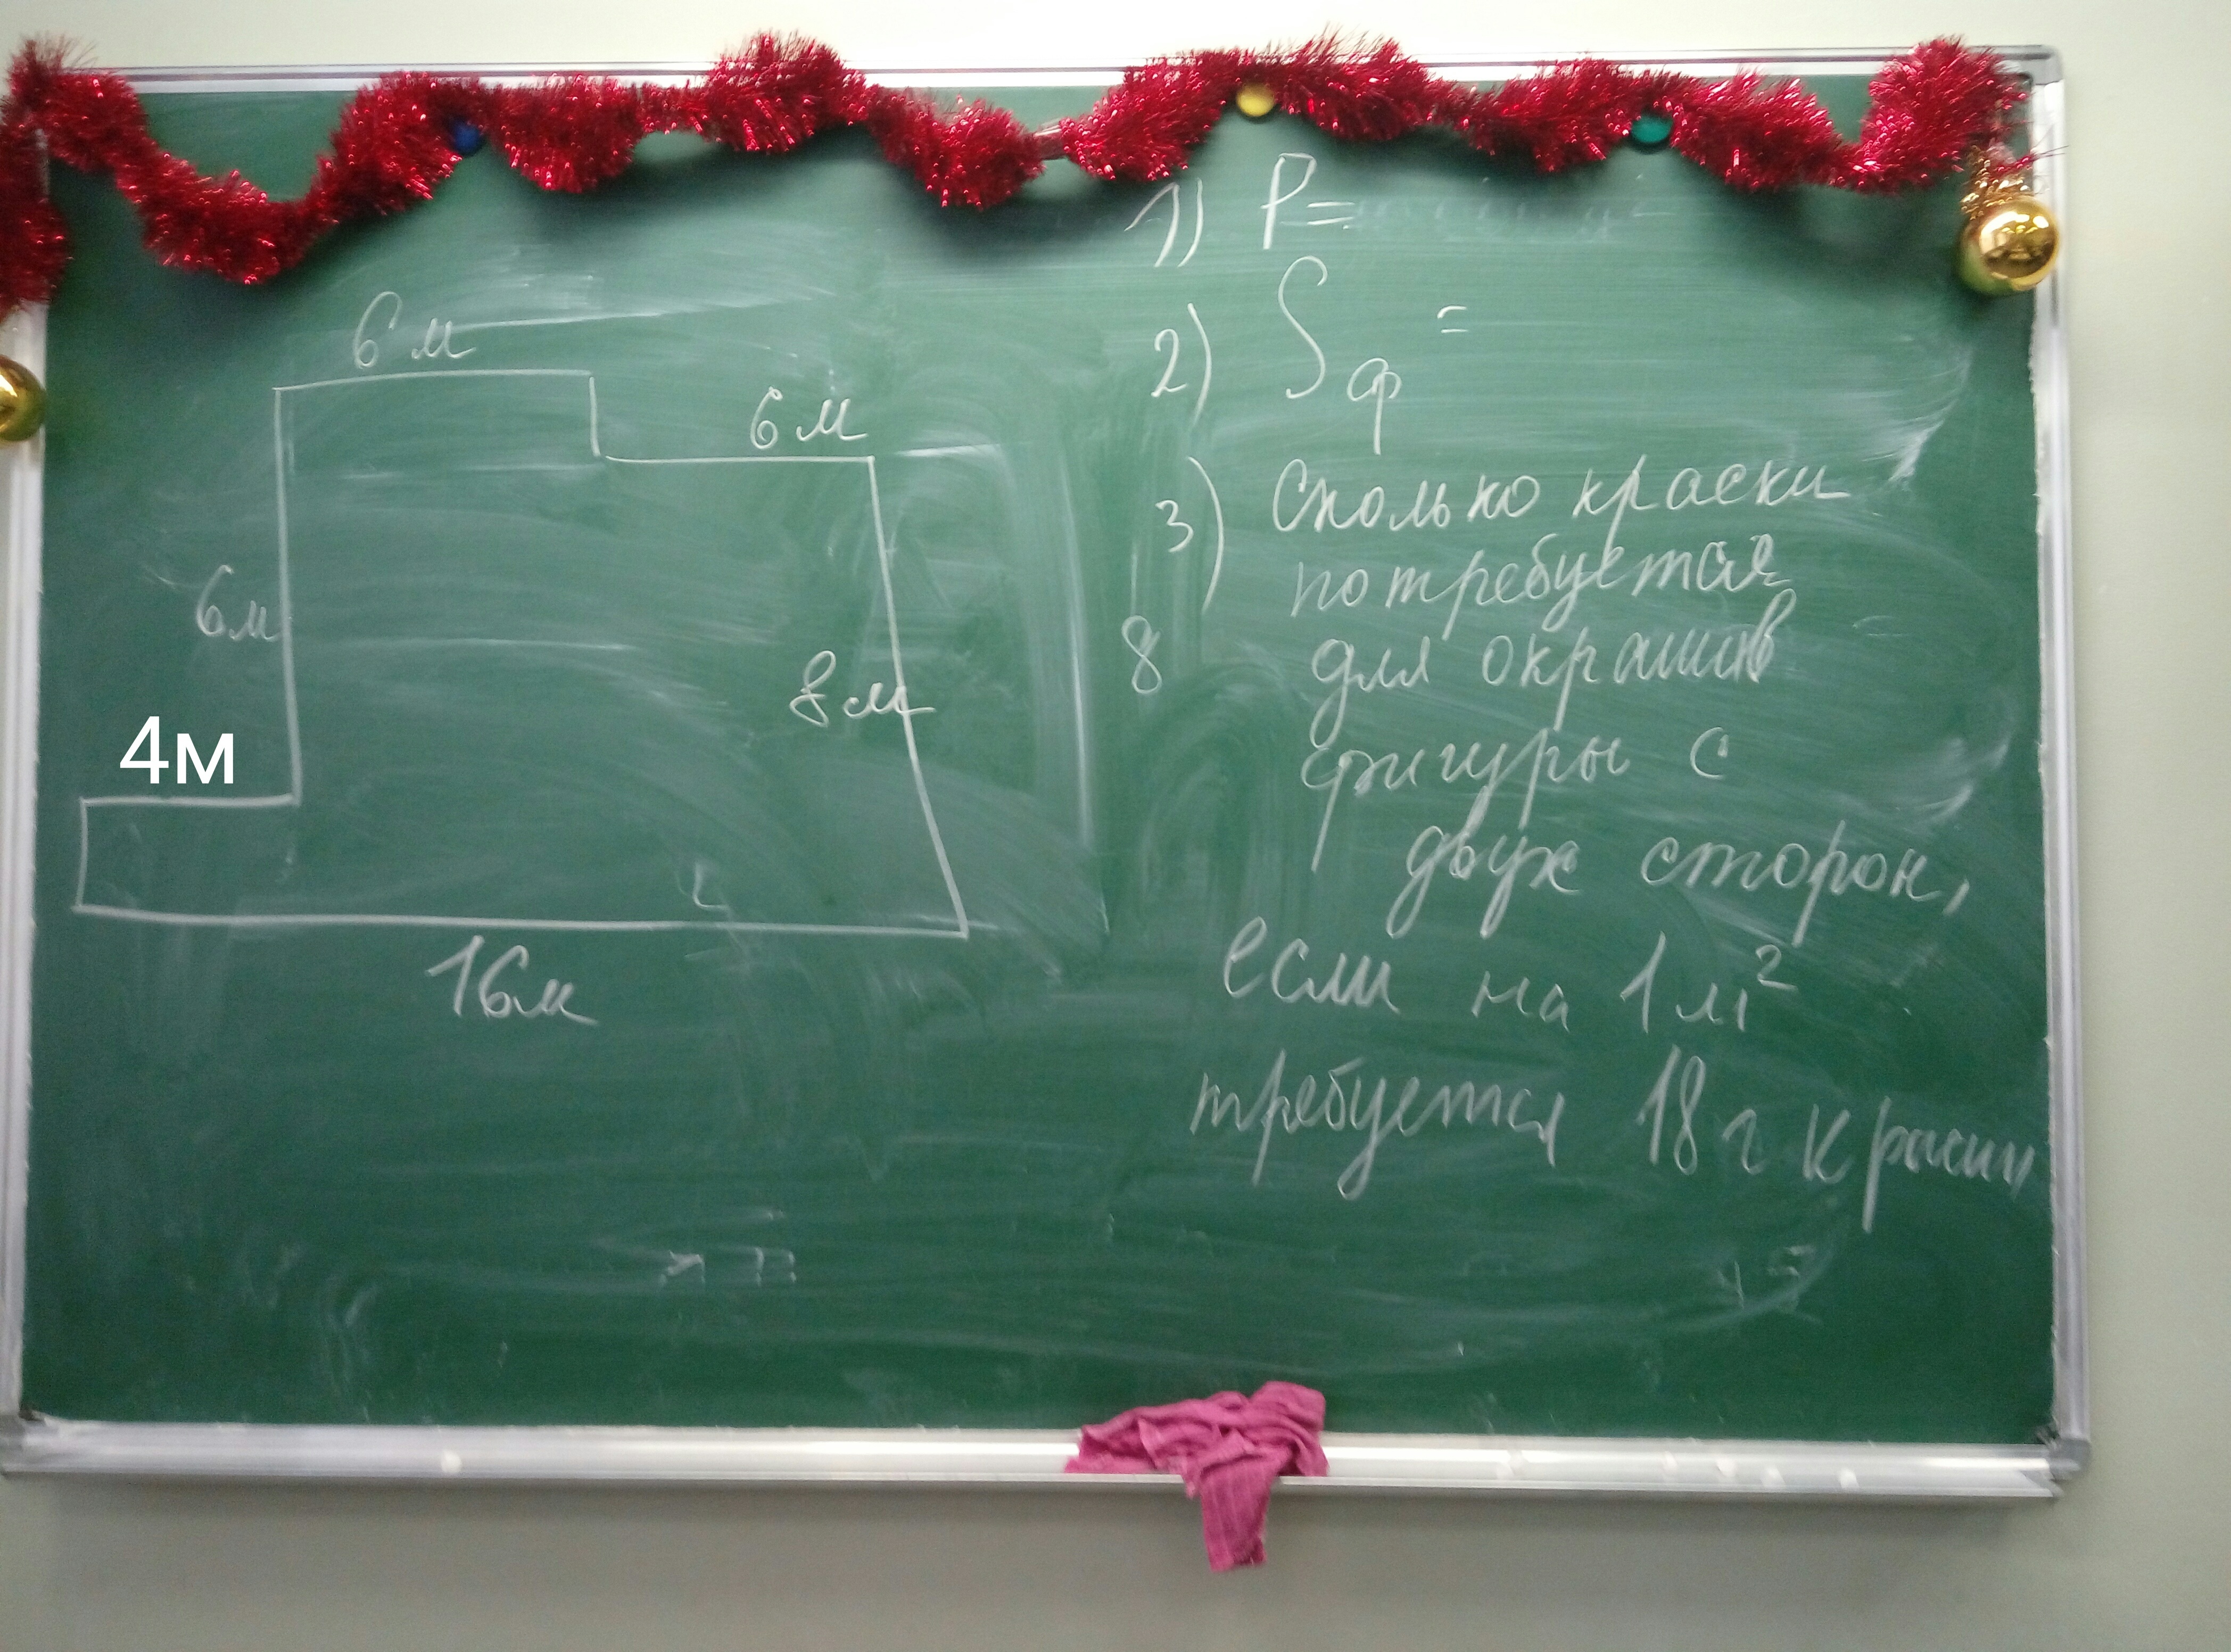 6 м
6 м
6м
8м
4м
16м
1) P=
2) Sф =
3) Сколько краски
потребуется
8
для окрашив
фигуры с
двух сторон,
если на 1 м²
требуется 18 г краски